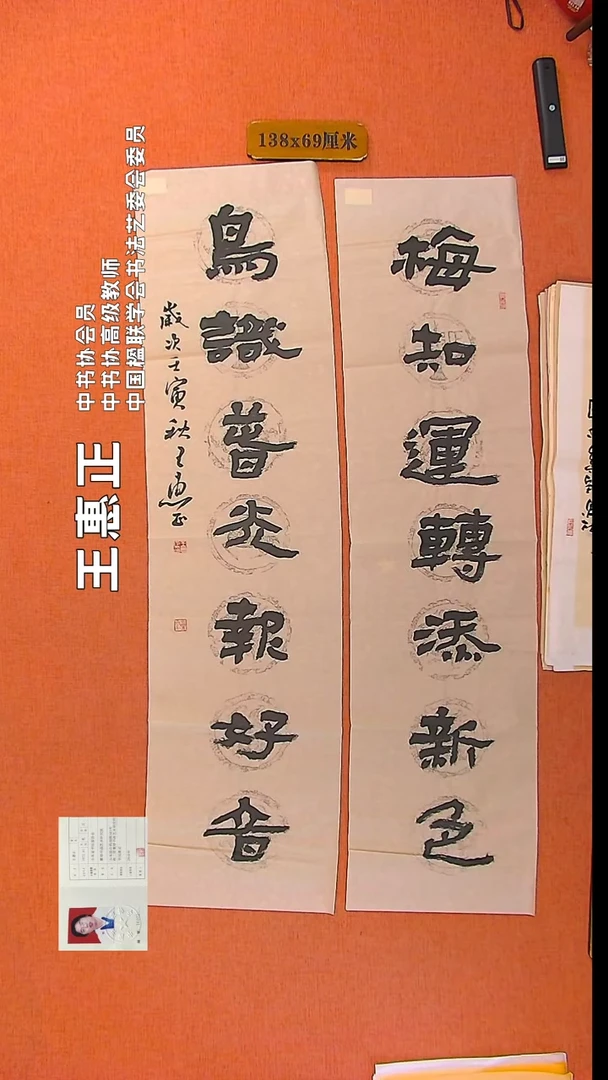 138x69厘米
梅知運轉添新色
鳥識普炎報好音
歲次壬寅秋王惠正
王惠正
中书协会员
中书协高级教师
中国楹联学会书法艺委会委员